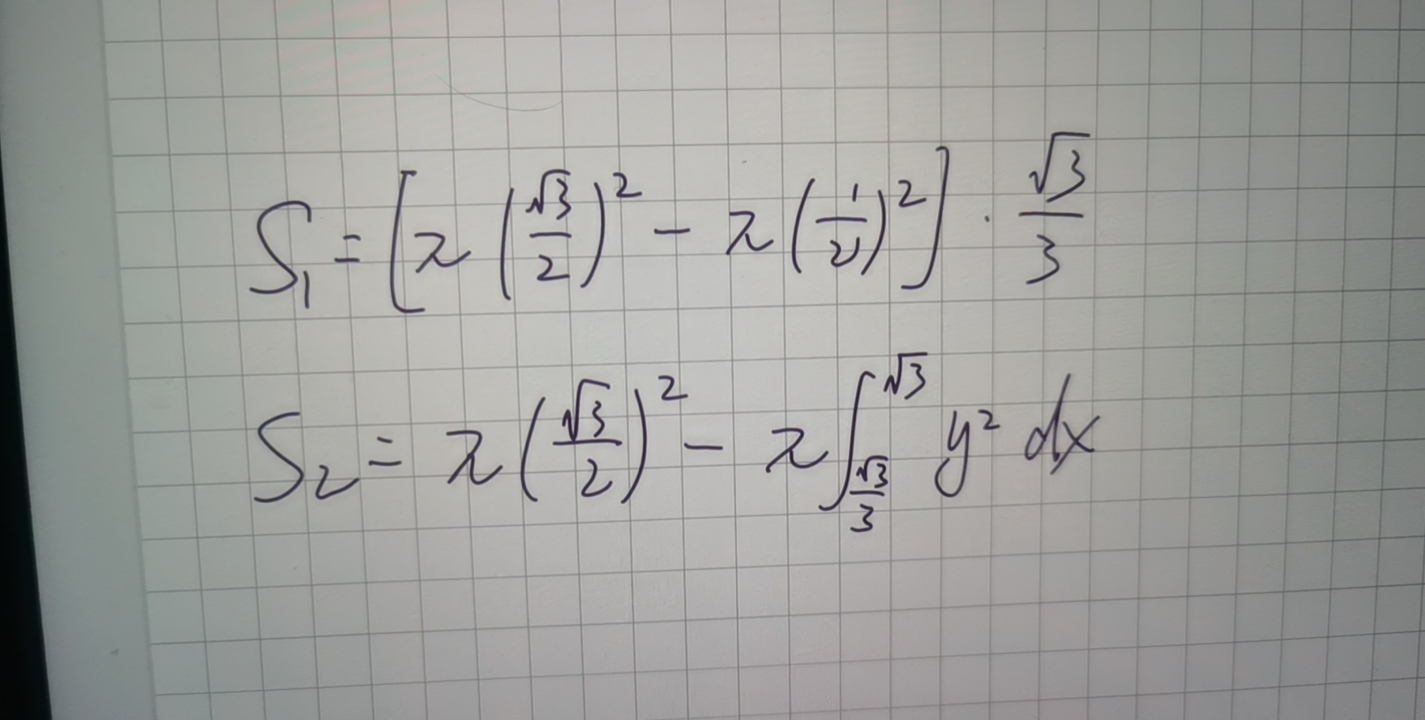 S₁ = [π (√3/2)² − π (1/2)²] · √3/3
S₂ = π (√3/2)² − π ∫_{√3/3}^{√3} y² dx